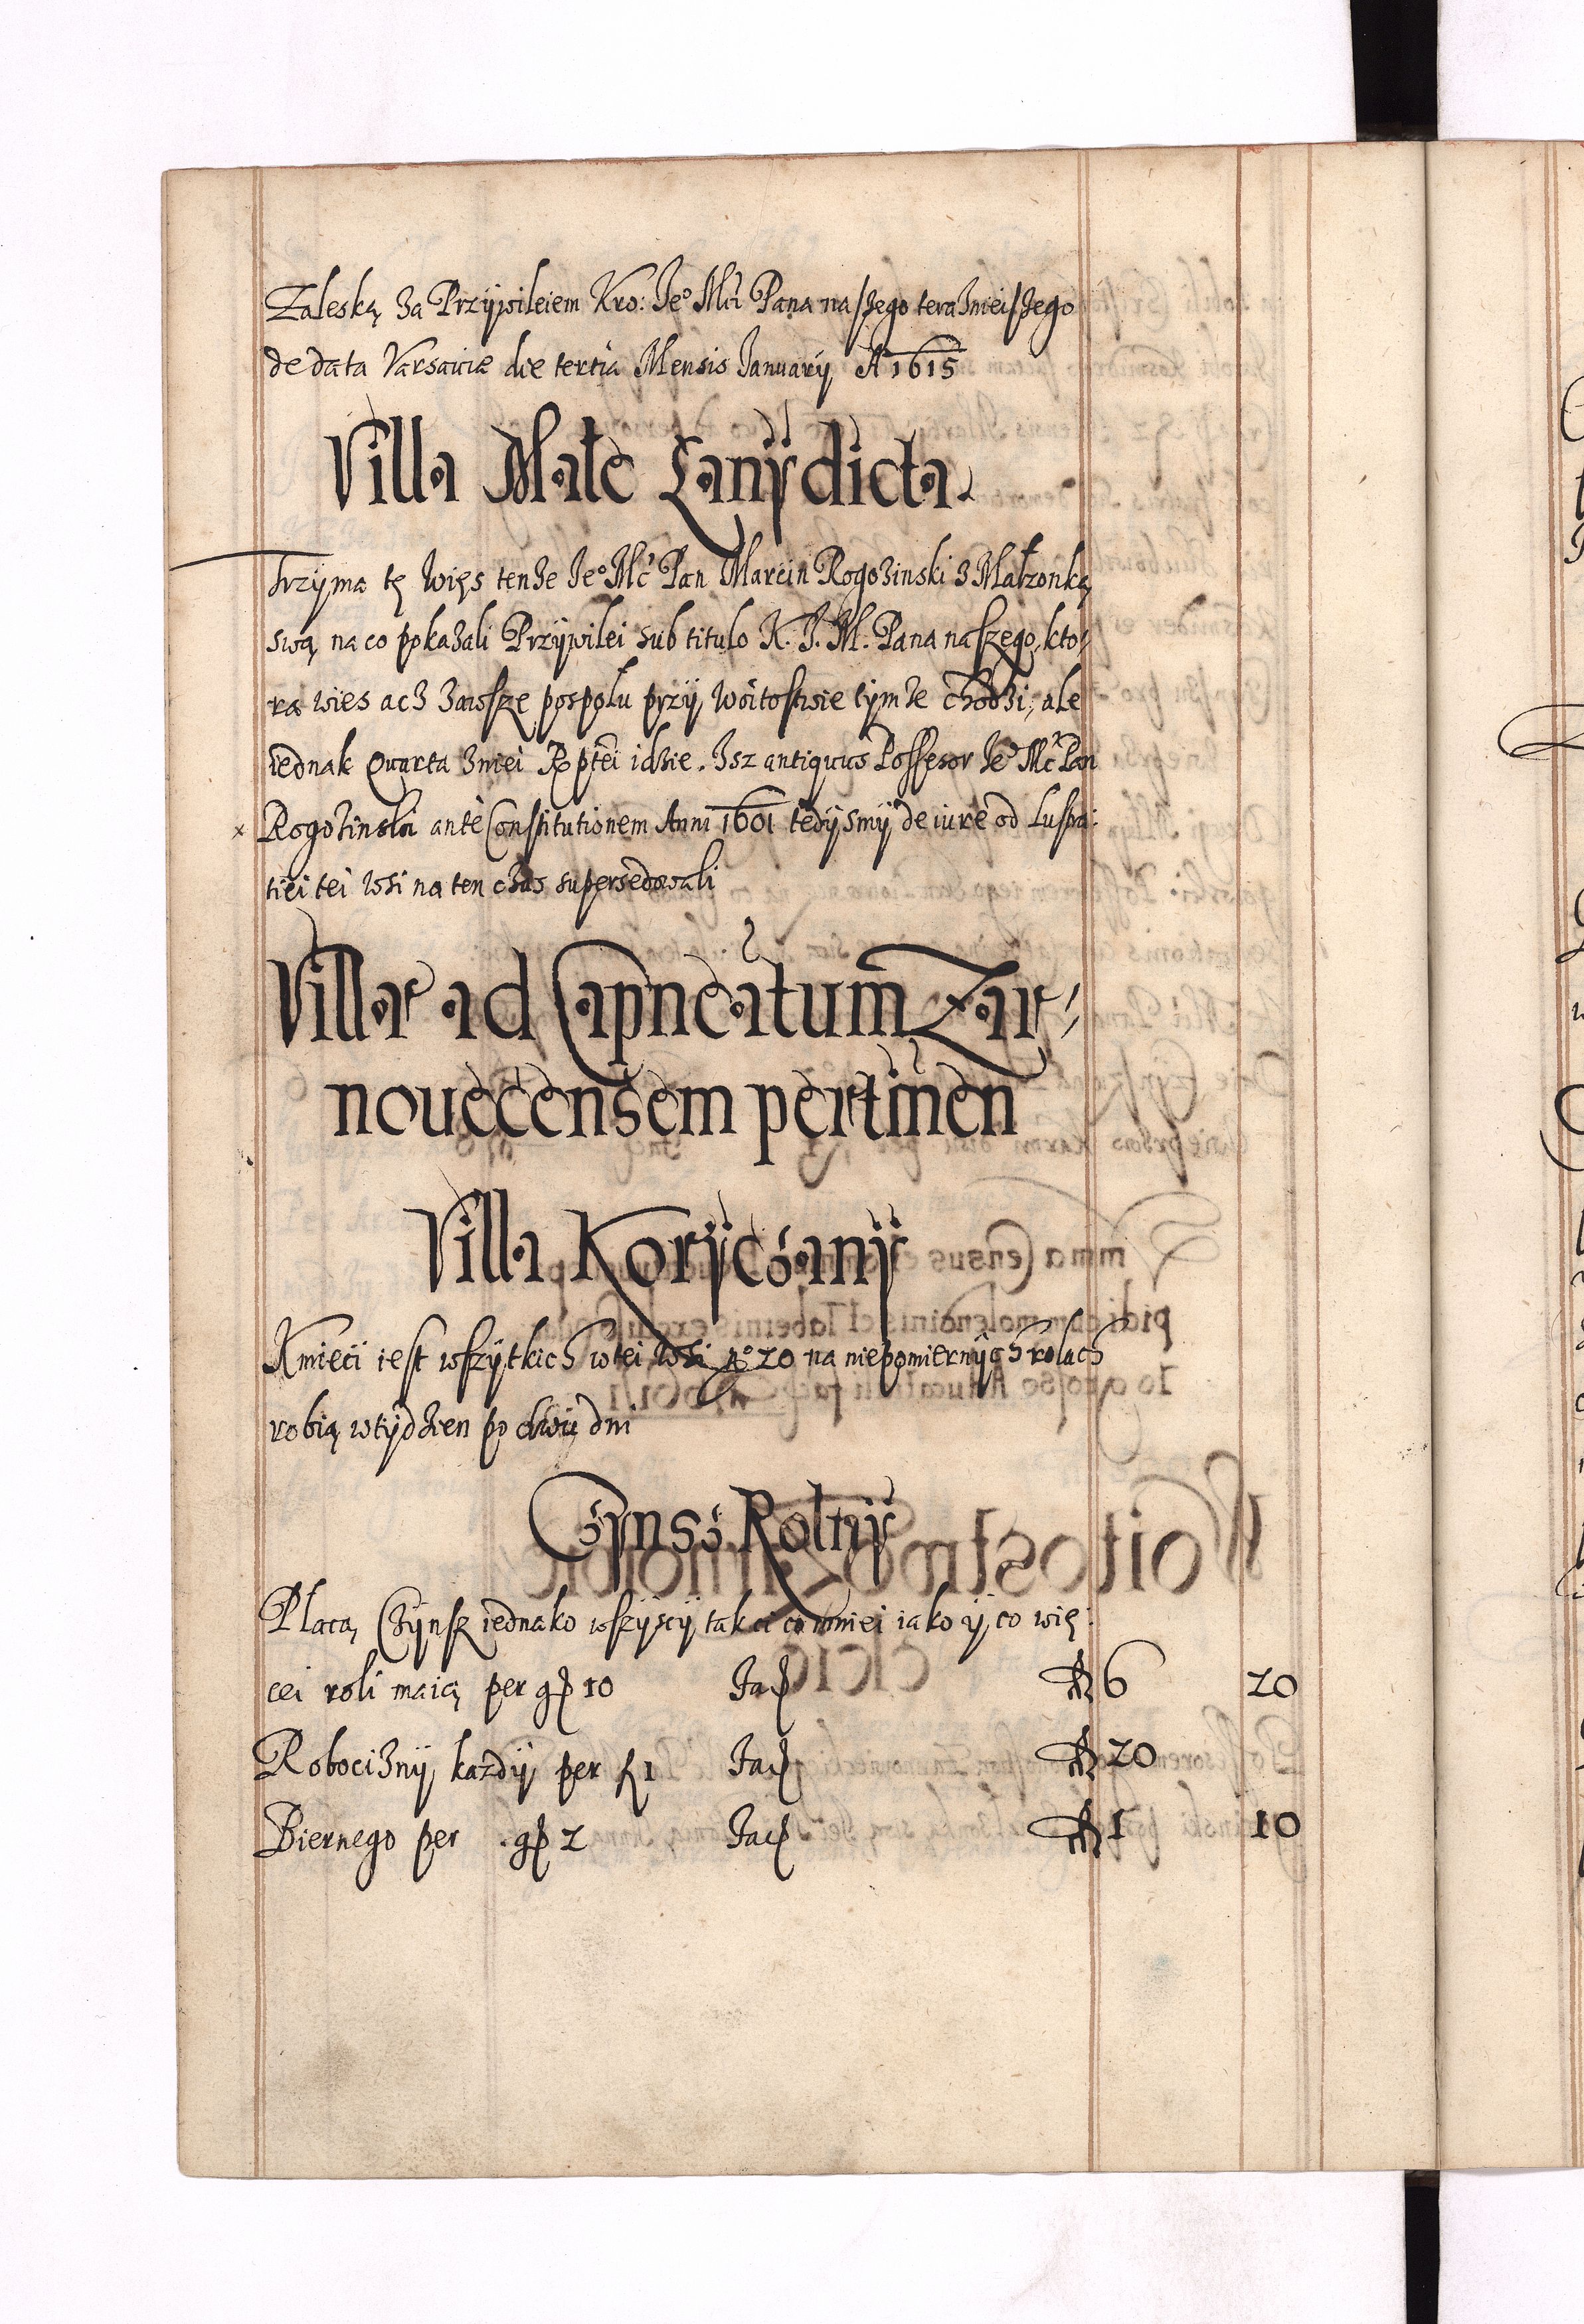 Zaleską za Przÿwileiem Kro: Je° Mći Pana naszego terazniejszego
de data Varsaviæ die tertia Mensis Januarÿ A° 1615
Villa Małe Łanÿ dicta
Trzÿma tę więs tenże Je° Mć Pan Marcin Rogozinski z Małzonką
swą na co pokazali Przÿwilei sub titulo K. J. M. Pana naszego, kto/
ra wies ach zawsze pospołu przÿ Woitostwie tÿmże chodzi, ale
iednak Quarta zniei Rptei idzie. Isz antiquus Possesor Je° Mć Pan
Rogoziński ante Constitutionem Anni 1601 tedÿsmÿ de iure od Lustra:
tiei tei wsi na ten czas supersedowali
Villæ ad Capneatum Zar/
noueccensem pertinen
Villa Korÿczanÿ
Kmieci iest wszÿtkich w tei wsi N° 20 na niepomiernÿch rolach
robią w tÿdzien po dwu dni
Czÿnsz Rolnÿ
Płacą Czÿnsz iednako wszÿscÿ tak ci co mniei iako ÿ co wię:
cei roli maią per gr 10 Facit fl 6 20
Robociznÿ każdÿ per fl 1 Facit fl 20
Biernego per gr 2 Facit fl 1 10